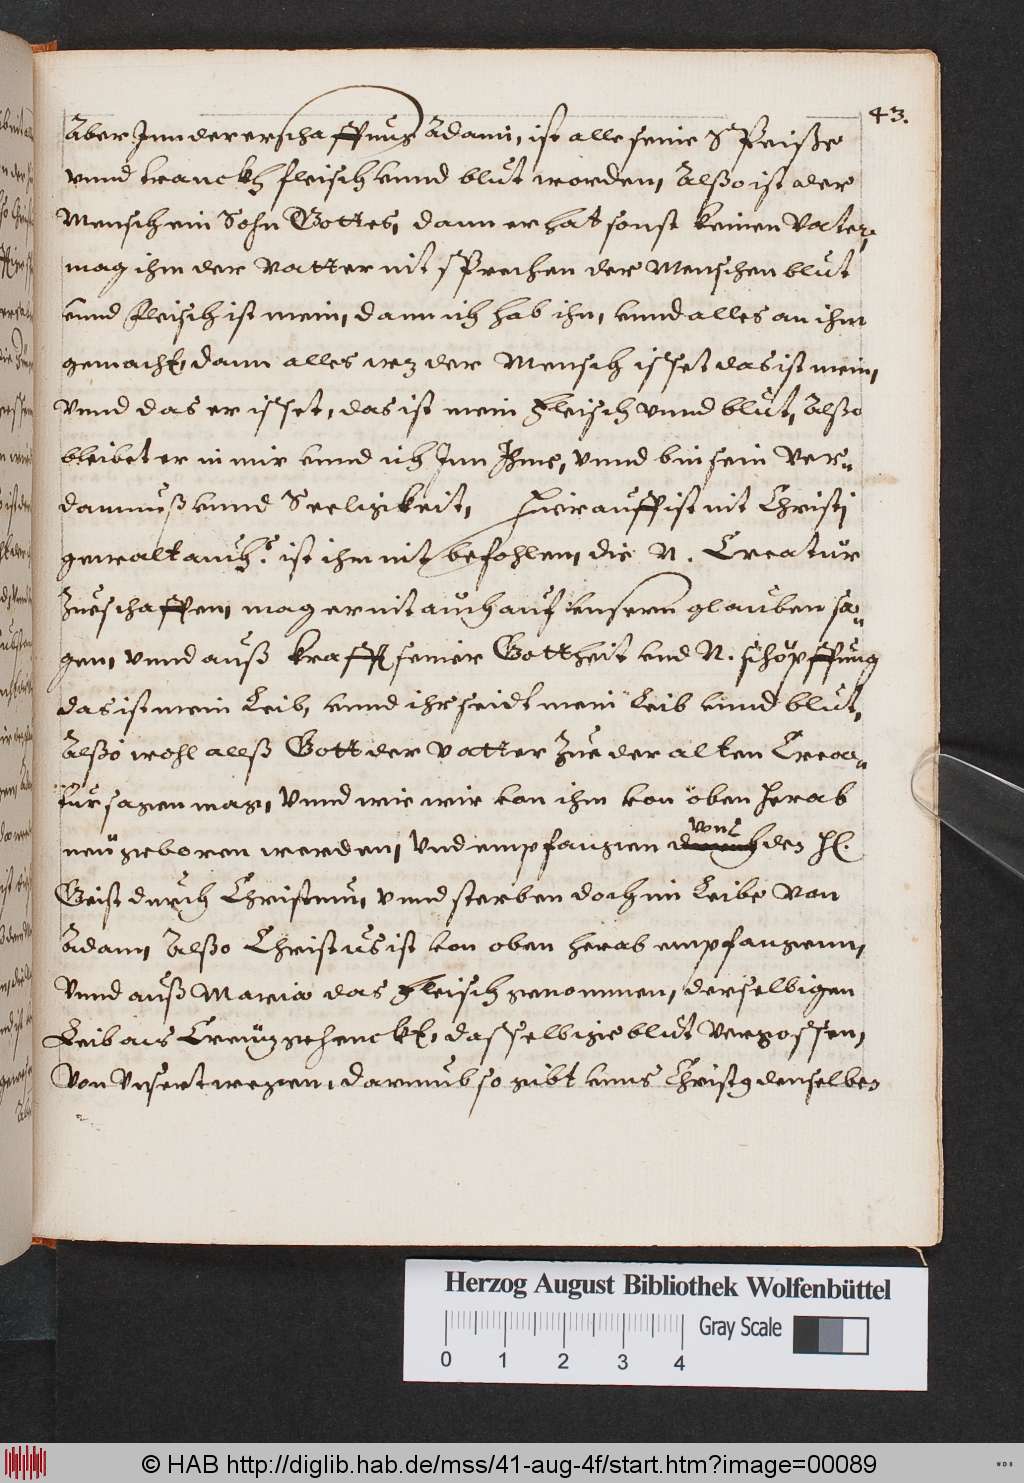 43.
Aber Inn der erschaffung Adami, ist alle seine Speiße
vnnd tranckh fleisch vnnd blut worden, Alßo ist der
Mensch ein Sohn Gottes, dann er hat sonst keinen Vater,
mag ihm der Vatter nit sprechen der Menschen blut
vnnd fleisch ist mein, dann ich hab ihn, vnnd alles an ihm
gemacht, dann alles wz der Mensch isset das ist mein,
Vnnd das er isset, das ist mein fleisch vnnd blut, Alßo
bleibet er in mir vnnd ich Inn Ihme, vnnd bin sein Ver-
damnuß vnnd Seeligkeit, Hierauff ist nit Christi
gewalt auch? ist ihm nit befohlen, die N. Creatur
Zueschaffen, mag er nit auch auf vnsern glauben sa-
gen, vnnd auß krafft seiner Gottheit vnd N. schöpffung
das ist mein Leib, vnnd ihr seidt mein Leib vnnd blut,
Alßo wohl allß Gott der Vatter Zue der alten Crea-
tur sagen mag, Vnnd wie wir von ihm von oben herab
neu geboren werden, Vnd empfangen durch vons dez Hl.
Geist durch Christum, vnnd sterben doch im Leibe von
Adam, Alßo Christus ist von oben herab empfangenn,
Vnnd auß Maria das fleisch genommen, derselbigen
Leib ans Creuz gehenckt, dasselbige blut vergossen,
Von Vnsertwegen, darumb so gibt vnns Christq denselben
Herzog August Bibliothek Wolfenbüttel
Gray Scale
0 1 2 3 4
© HAB http://diglib.hab.de/mss/41-aug-4f/start.htm?image=00089